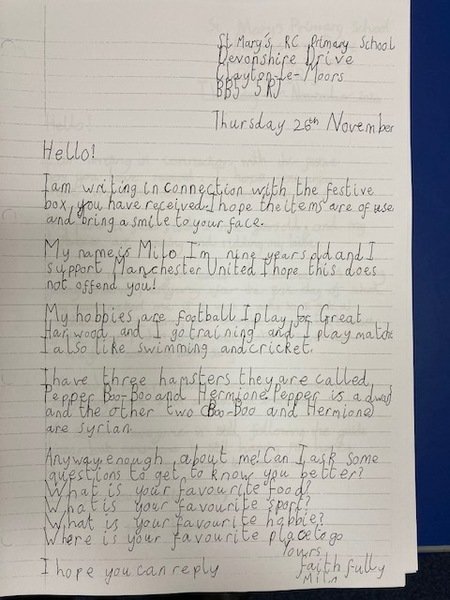 St Mary's, RC Primary School
Devonshire Drive
Clayton-le-Moors
BB5 5RJ
Thursday 26th November
Hello!
I am writing in connection with the festive
box you have received. I hope the items are of use
and bring a smile to your face.
My name is Milo I'm nine years old and I
support Manchester United I hope this does
not offend you!
My hobbies are football I play for Great
Harwood and I go training and I play match
I also like swimming and cricket.
I have three hamsters they are called
Pepper Boo-Boo and Hermione. Pepper is a
and the other two Boo-Boo and Hermione
are syrian.
Anyway enough about me! Can I ask some
questions to get to know you better?
What is your favourite food?
What is your favourite sport?
What is your favourite hobbie?
Where is your favourite place to go
Yours
I hope you can reply faithfully
Milo